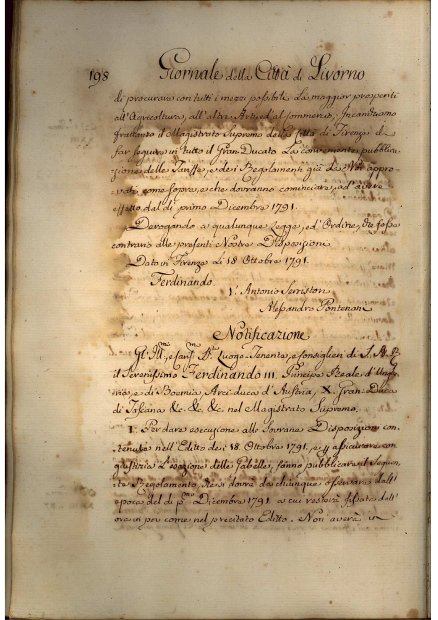 198 Giornale della Città di Livorno
di procurare con tutti i mezzi possibili la maggior prosperità
all'Agricoltura, all'altre Arti, ed al Commercio, Incarichiamo
frattanto il Magistrato Supremo della Città di Firenze di
far seguire in tutto il Gran Ducato la conveniente pubblica-
zione delle Tariffe, e dei Regolamenti già da Noi appro-
vati come sopra, e che dovranno cominciare ad avere
effetto dal dì primo Dicembre 1791.
Derogando a qualunque Legge, ed Ordine, che fosse
contrario alle presenti Nostre Disposizioni
Dato in Firenze li 18 Ottobre 1791.
Ferdinando
Vt. Antonio Serristori
Alessandro Pontenani
Notificazione
Gl' Ill.mi, e Luogo Tenente, e Consiglieri di S. A. R.
il Serenissimo Ferdinando III. Principe Reale d'Unghe-
ria, e di Boemia, Arciduca d'Austria, X. Gran Duca
di Toscana &c. &c. &c. nel Magistrato Supremo.
I. Per dare esecuzione alle Sovrane Disposizioni con-
tenute nell'Editto de 18 Ottobre 1791, e p assicurare con
giustizia l'esazione delle Gabelle, fanno pubblicare il seguen-
te Regolamento, che si dovrà da chiunque osservare dall'
epoca del dì p.mo Dicembre 1791 a cui resterà fissata dall'
ora in poi come nel precitato Editto. Non averà in